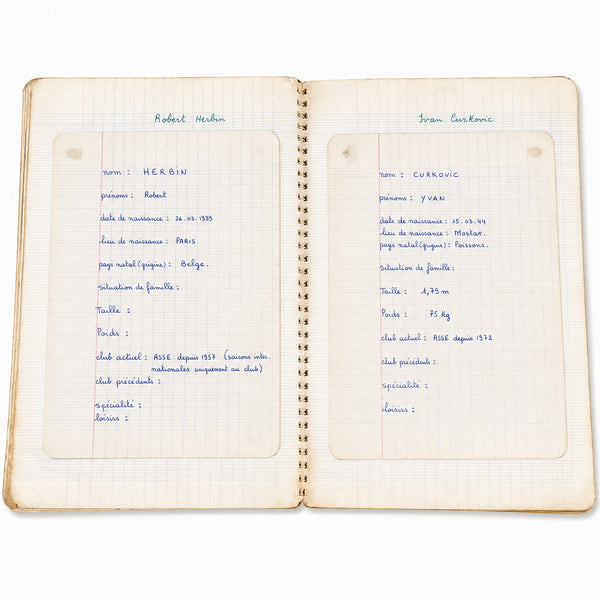 Robert Herbin
nom : HERBIN
prénoms : Robert
date de naissance : 26.03.1939
lieu de naissance : PARIS
pays natal (origine) : Belge.
situation de famille :
Taille :
Poids :
club actuel : ASSE depuis 1957 (saisons inter.
nationales uniquement au club)
club précédents :
spécialité :
loisirs :
Ivan Curkovic
nom : CURKOVIC
prénoms : YVAN
date de naissance : 15.03.44
lieu de naissance : Mostar.
pays natal (origine) : Poissons.
situation de famille :
Taille : 1,79 m
Poids : 75 Kg
club actuel : ASSE depuis 1972
club précédents :
spécialité :
loisirs :